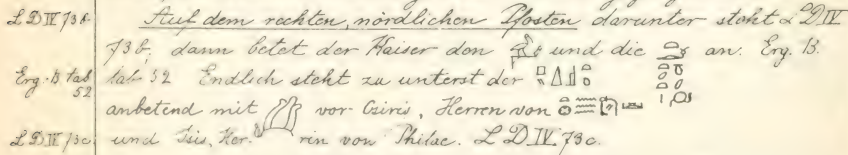 L D IV 73 b Auf dem rechten, nördlichen Pfosten darunter steht L D IV
73 b, dann betet der Kaiser den und die an. Erg. B.
Erg. B tab 52 tab 52 Endlich steht zu unterst der
anbetend mit vor Osiris, Herren von
L D IV 73 c und Isis, Herrin von Philae. L D IV. 73 c.